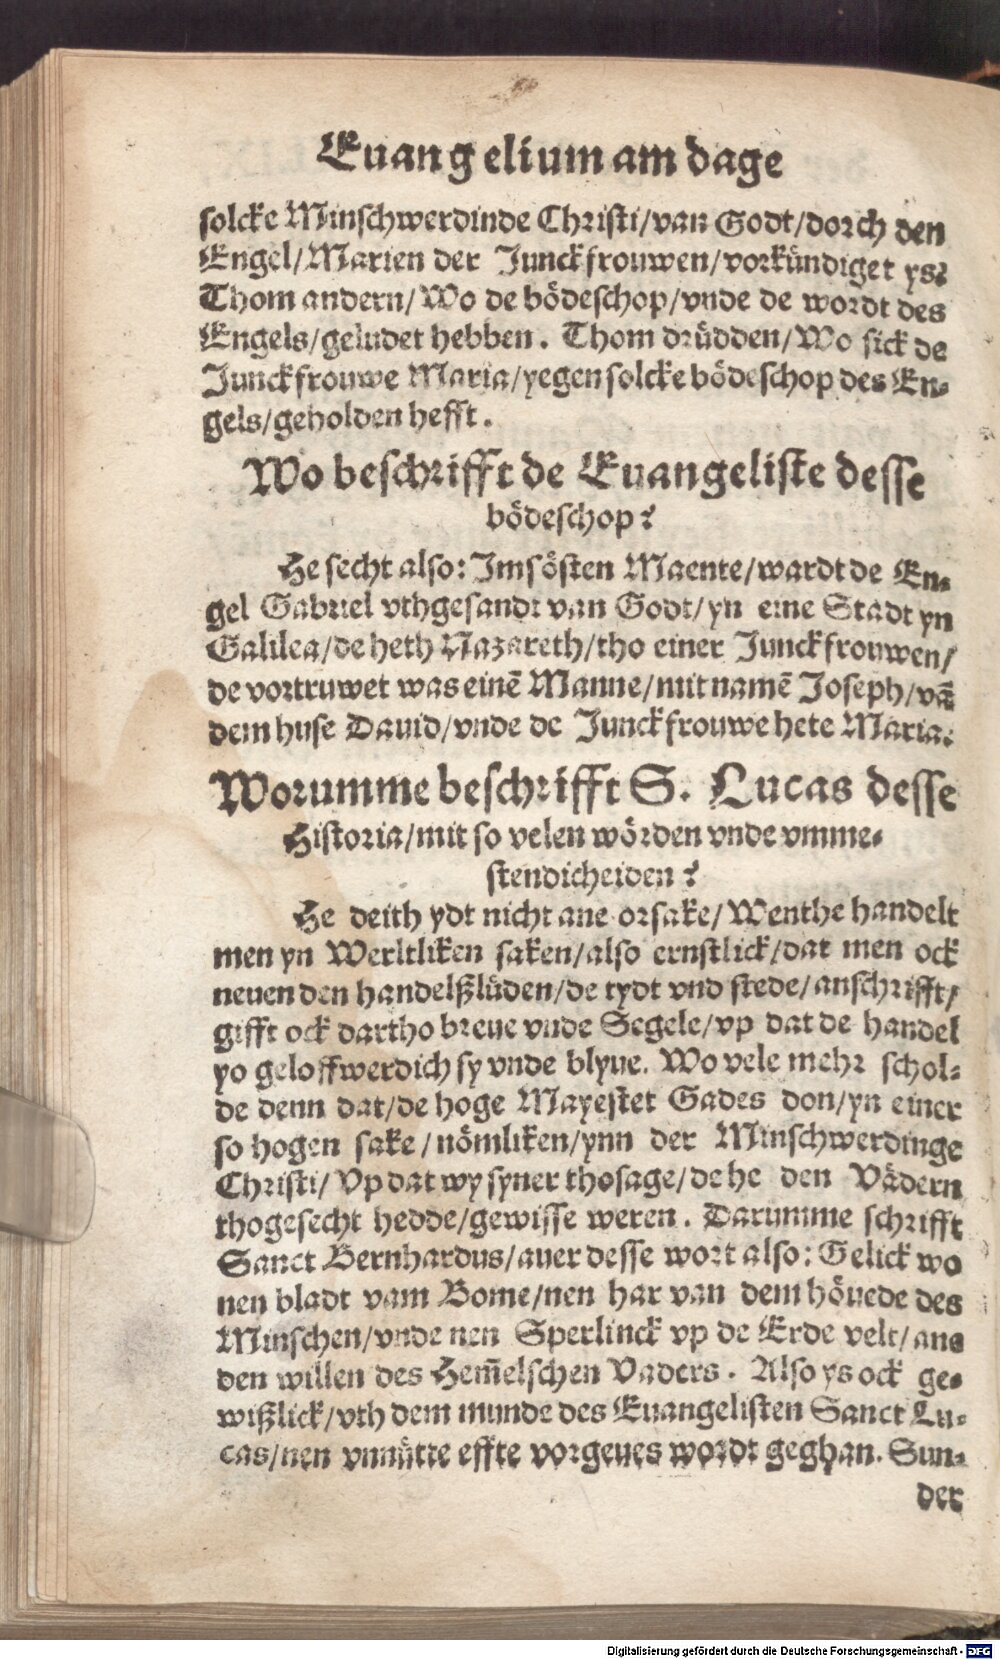 Euangelium am dage
solcke Minschwerdinde Christi/van Godt/dorch den
Engel/Marien der Junckfrouwen/vorkündiget ys?
Thom andern/Wo de bödeschop/vnde de wordt des
Engels/geludet hebben. Thom drüdden/Wo sick de
Junckfrouwe Maria/yegen solcke bödeschop des En-
gels/geholden hefft.
Wo beschrifft de Euangeliste desse
bödeschop?
He secht also: Im sösten Maente/wardt de En-
gel Gabriel vthgesandt van Godt/yn eine Stadt yn
Galilea/de heth Nazareth/tho einer Junckfrouwen/
de vortruwet was einē Manne/mit namē Joseph/vā
dem huse Dauid/vnde de Junckfrouwe hete Maria.
Worumme beschrifft S. Lucas desse
Historia/mit so velen wörden vnde vmme-
stendicheiden?
He deith ydt nicht ane orsake/Wenthe handelt
men yn Werltliken saken/also ernstlick/dat men ock
neuen den handelßlüden/de tydt vnd stede/anschrifft/
gifft ock dartho breue vnde Segele/vp dat de handel
yo geloffwerdich sy vnde blyue. Wo vele mehr schol-
de denn dat/de hoge Mayestet Gades don/yn einer
so hogen sake/nömliken/ynn der Minschwerdinge
Christi/Vp dat wy syner thosage/de he den Vädern
thogesecht hedde/gewisse weren. Darumme schrifft
Sanct Bernhardus/auer desse wort also: Gelick wo
nen bladt vam Bome/nen har van dem höuede des
Minschen/vnde nen Sperlinck vp de Erde velt/ane
den willen des Hem̄elschen Vaders. Also ys ock ge-
wißlick/vth dem munde des Euangelisten Sanct Lu-
cas/nen vnnütte effte vorgeues wordt geghan. Sun-
der
Digitalisierung gefördert durch die Deutsche Forschungsgemeinschaft - DFG